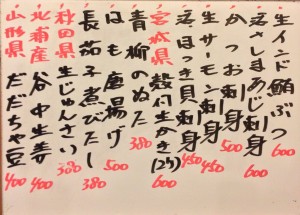 生インド鮪ぶつ 600
しまあじ刺身 600
かつお刺身 500
生サーモン刺身 450
活ほっき貝刺身 450
宮城県 殻付生かき(2ケ) 600
青柳のぬた 380
はも唐揚げ 500
長茄子煮びたし 380
秋田県 生じゅんさい 380
北浦産 谷中生姜 400
山形県 だだちゃ豆 400